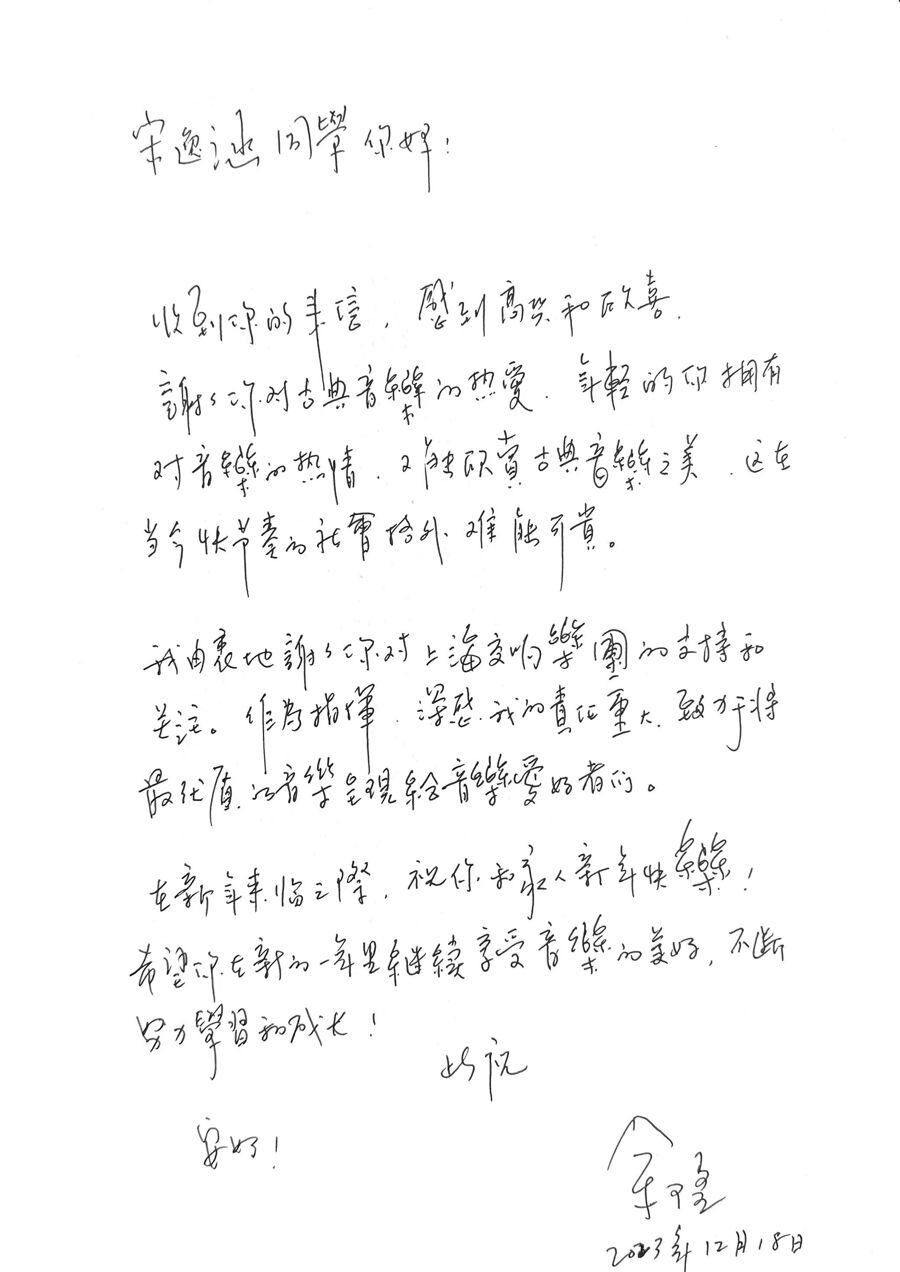 宋逸涵同學你好！
收到你的来信，感到高兴和欣喜.
謝谢你对古典音樂的热愛. 年輕的你拥有
对音樂的热情, 又能欣賞古典音樂之美. 这在
当今快节奏的社會格外难能可貴。
我由衷地謝谢你对上海交响樂團的支持和
关注。作为指揮, 深感我的責任重大, 致力于将
最优质的音樂呈現给音樂愛好者们。
在新年来临之際, 祝你和家人新年快樂！
希望你在新的一年里继续享受音樂的美好, 不断
努力學習和成长！
此祝
安好！
余隆
2023年12月18日